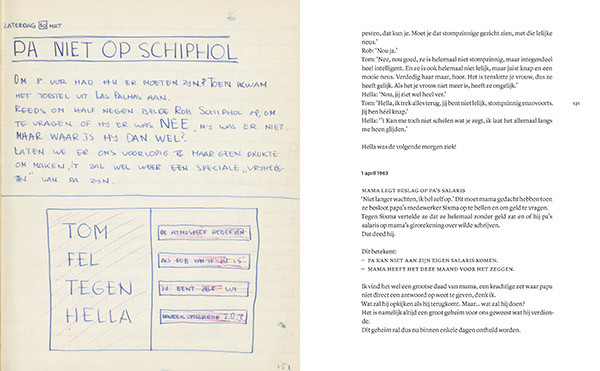 ZATERDAG 30 MRT
PA NIET OP SCHIPHOL
OM 8 UUR HAD HIJ ER MOETEN ZIJN? TOEN KWAM
HET TOESTEL UIT LAS PALMAS AAN.
REEDS OM HALF NEGEN BELDE ROB SCHIPHOL OP, OM
TE VRAGEN OF HIJ ER WAS NEE, HIJ WAS ER NIET.
MAAR WAAR IS HIJ DAN WEL?
LATEN WE ER ONS VOORLOPIG TE MAAR GEEN DRUKTE
OM MAKEN, 'T ZAL WEL WEER EEN SPECIALE
VAN PA ZIJN.
TOM
FEL
TEGEN
HELLA
DE ATMOSFEER BEDERVEN
ALS ROB VAN JE IS
JIJ BENT ZELF LUI
151
pesten, dat kun je. Moet je dat stompzinnige gezicht zien, met die lelijke
neus.'
Rob: 'Nou ja.'
Tom: 'Nee, nou goed, ze is helemaal niet stompzinnig, maar integendeel
heel intelligent. En ze is ook helemaal niet lelijk, maar juist knap en een
mooie neus. Verdedig haar maar, hoor. Het is tenslotte je vrouw, dus ze
heeft gelijk. Als het je vrouw niet meer is, heeft ze ongelijk.'
Hella: 'Nou, jij ziet wel heel ver.'
Tom: 'Hella, ik trek alles terug, jij bent niet lelijk, stompzinnig enzovoorts.
Jij ben héél knap.'
Hella: ''t Kan me toch niet schelen wat je zegt, ik laat het allemaal langs
me heen glijden.'
131
Hella was de volgende morgen ziek!
1 april 1963
MAMA LEGT BESLAG OP PA'S SALARIS
'Niet langer wachten, ik bel zelf op.' Dit moet mama gedacht hebben toen
ze besloot papa's medewerker Sixma op te bellen en om geld te vragen.
Tegen Sixma vertelde ze dat ze helemaal zonder geld zat en of hij pa's
salaris op mama's girorekening over wilde schrijven.
Dat deed hij.
Dit betekent:
– PA KAN NIET AAN ZIJN EIGEN SALARIS KOMEN,
– MAMA HEEFT HET DEZE MAAND VOOR HET ZEGGEN.
Ik vind het wel een grootse daad van mama, een krachtige zet waar papa
niet direct een antwoord op weet te geven, denk ik.
Wat zal hij opkijken als hij terugkomt. Maar... wat zal hij doen?
Het is namelijk altijd een groot geheim voor ons geweest wat hij verdien-
de.
Dit geheim zal dus nu binnen enkele dagen onthuld worden.